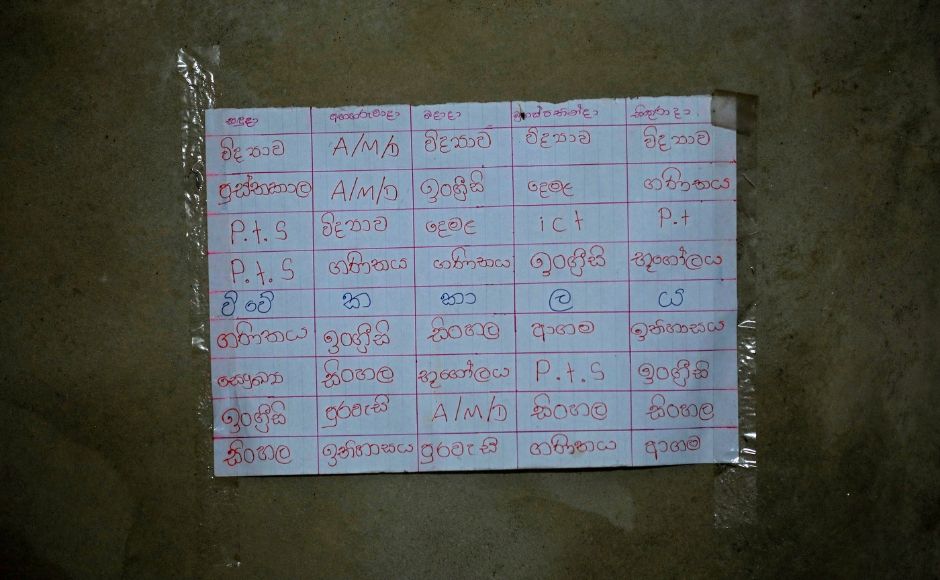 සඳුදා අඟහරුවාදා බදාදා බ්‍රහස්පතින්දා සිකුරාදා
විද්‍යාව A/M/D විද්‍යාව විද්‍යාව විද්‍යාව
පුස්තකාල A/M/D ඉංග්‍රීසි දෙමළ ගණිතය
P.t.s විද්‍යාව දෙමළ ict P.t
P.t.s ගණිතය ගණිතය ඉංග්‍රීසි භූගෝලය
වි වේ කා කා ල ය
ගණිතය ඉංග්‍රීසි සිංහල ආගම ඉතිහාසය
සෞඛ්‍ය සිංහල භූගෝලය P.t.s ඉංග්‍රීසි
ඉංග්‍රීසි පුරවැසි A/M/D සිංහල සිංහල
සිංහල ඉතිහාසය පුරවැසි ගණිතය ආගම